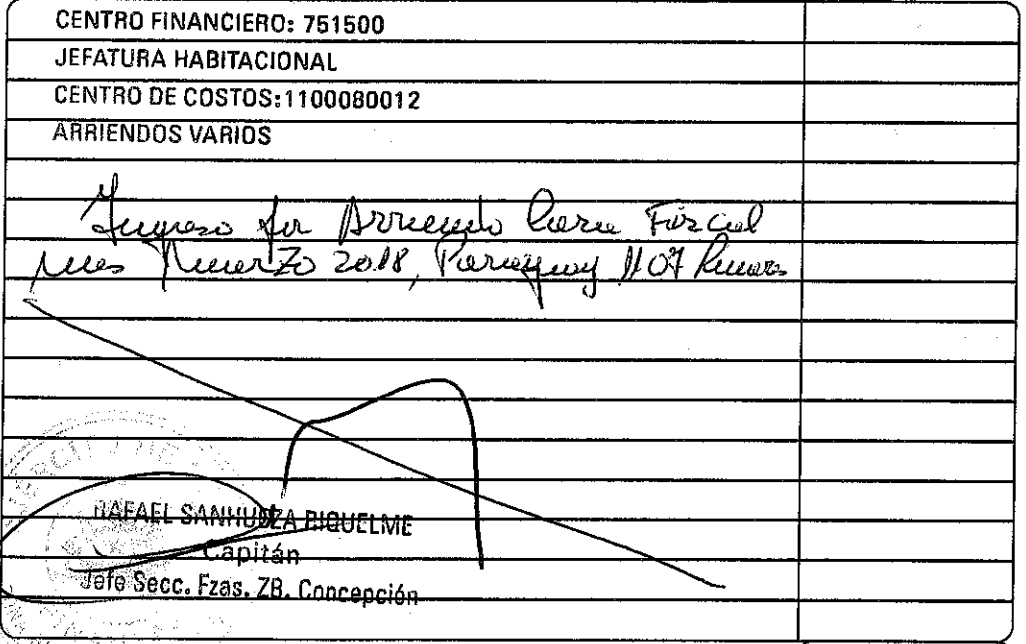 CENTRO FINANCIERO: 751500
JEFATURA HABITACIONAL
CENTRO DE COSTOS:1100080012
ARRIENDOS VARIOS
Ingreso por Arriendo Casa Fiscal
mes Marzo 2018, Paraguay 1107
RAFAEL SANHUEZA RIQUELME
Capitán
Jefe Secc. Fzas. ZB. Concepción